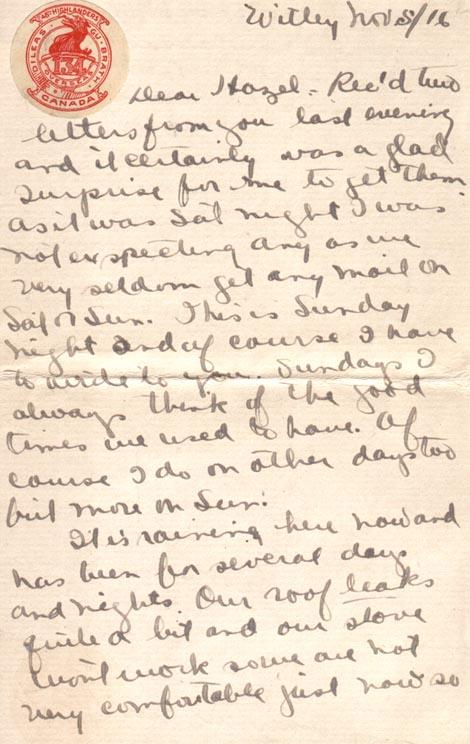 48TH HIGHLANDERS
DILEAS GU BRATH
134
OVERSEAS
CANADA
Witley Nov 5/16
Dear Hazel - Rec'd two
letters from you last evening
and it certainly was a glad
surprise for me to get them.
as it was Sat night I was
not expecting any as we
very seldom get any mail on
Sat or Sun. This is Sunday
night and of course I have
to write to you. Sundays I
always think of the good
times we used to have. Of
course I do on other days too
but more on Sun.
It is raining here now and
has been for several days
and nights. Our roof leaks
quite a bit and our stove
won't work so we are not
very comfortable just now so